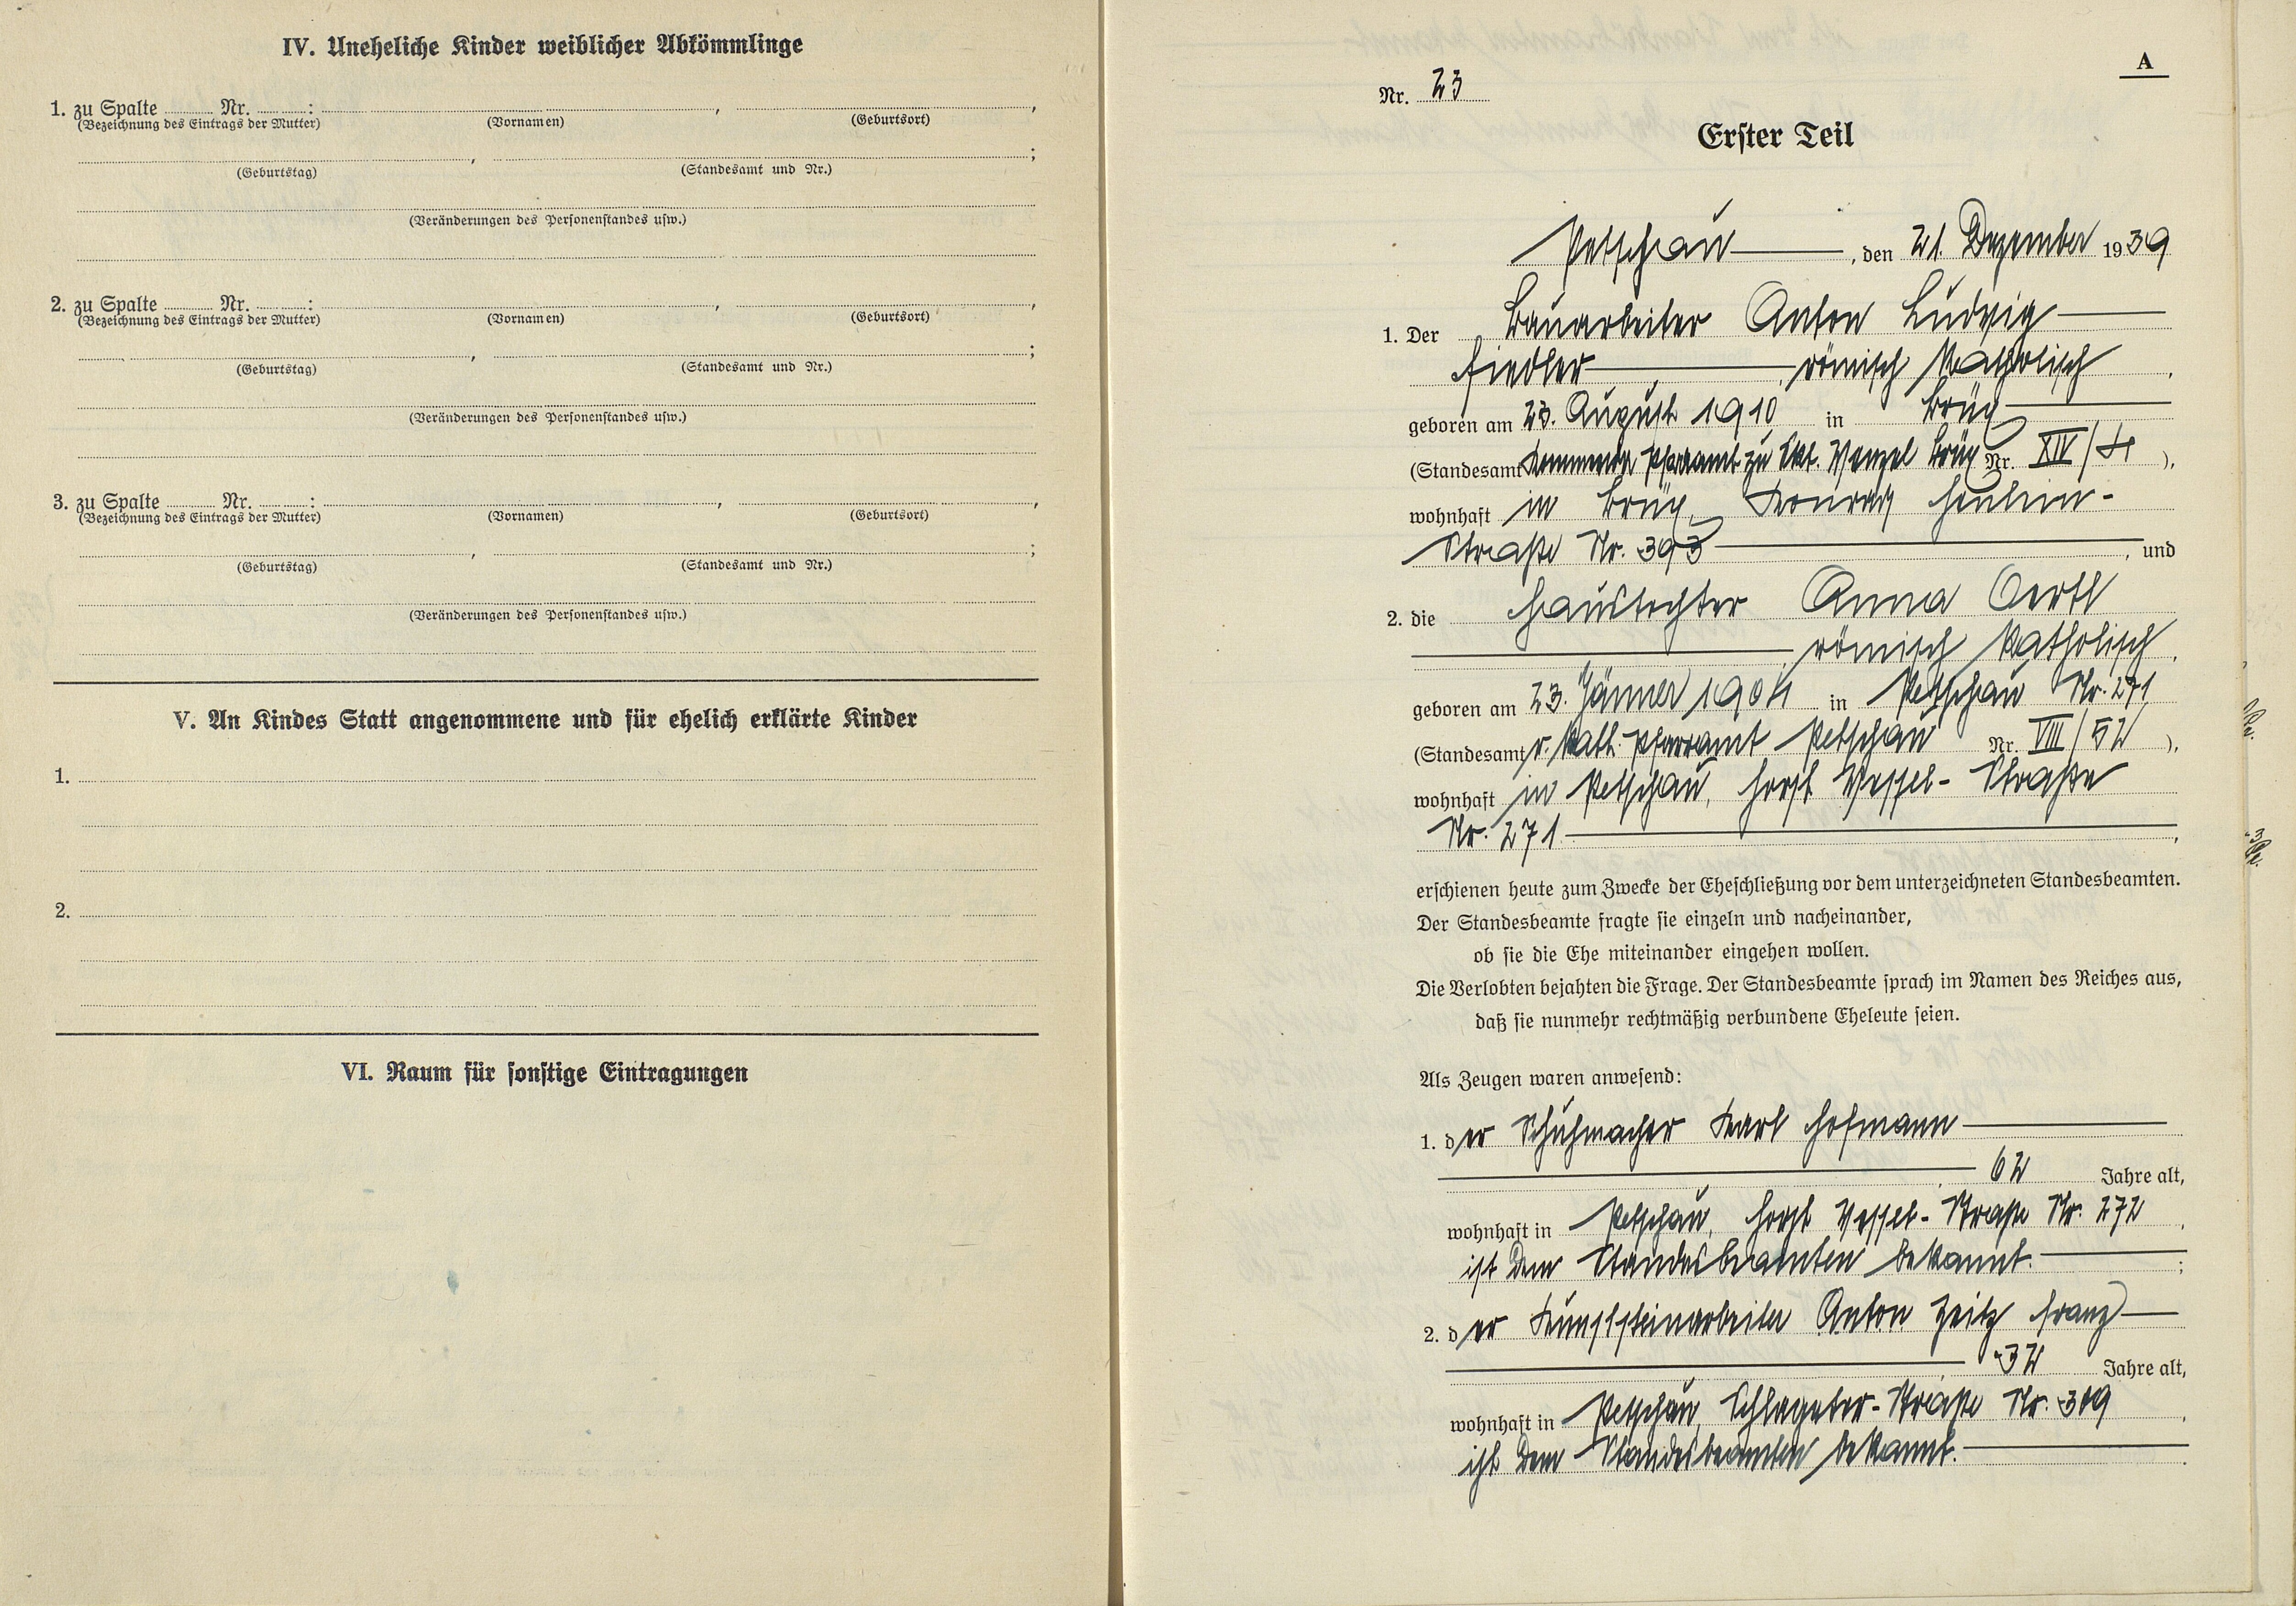 IV. Uneheliche Kinder weiblicher Abkömmlinge
1. zu Spalte ........ Nr. ........: ........, ........,
(Bezeichnung des Eintrags der Mutter) (Vornamen) (Geburtsort)
........, ........;
(Geburtstag) (Standesamt und Nr.)
(Veränderungen des Personenstandes usw.)
2. zu Spalte ........ Nr. ........: ........, ........,
(Bezeichnung des Eintrags der Mutter) (Vornamen) (Geburtsort)
........, ........;
(Geburtstag) (Standesamt und Nr.)
(Veränderungen des Personenstandes usw.)
3. zu Spalte ........ Nr. ........: ........, ........,
(Bezeichnung des Eintrags der Mutter) (Vornamen) (Geburtsort)
........, ........;
(Geburtstag) (Standesamt und Nr.)
(Veränderungen des Personenstandes usw.)
V. An Kindes Statt angenommene und für ehelich erklärte Kinder
1.
2.
VI. Raum für sonstige Eintragungen
A
Nr. 23
Erster Teil
Petschau, den 21. Dezember 1939
1. Der Bauarbeiter Anton Ludwig
Fiedler, römisch katholisch,
geboren am 23. August 1910 in Brüx
(Standesamt Pfarramt zu Skt. Wenzel Brüx Nr. XIV/4),
wohnhaft in Brüx, Konrad Henlein-
Straße Nr. 393, und
2. die Haustochter Anna Oertl
römisch katholisch,
geboren am 23. Jänner 1904 in Petschau Nr. 271
(Standesamt r. kath. Pfarramt Petschau Nr. VIII/52),
wohnhaft in Petschau, Horst Wessel-Straße
Nr. 271,
erschienen heute zum Zwecke der Eheschließung vor dem unterzeichneten Standesbeamten.
Der Standesbeamte fragte sie einzeln und nacheinander,
ob sie die Ehe miteinander eingehen wollen.
Die Verlobten bejahten die Frage. Der Standesbeamte sprach im Namen des Reiches aus,
daß sie nunmehr rechtmäßig verbundene Eheleute seien.
Als Zeugen waren anwesend:
1. der Schuhmacher Karl Hofmann
62 Jahre alt,
wohnhaft in Petschau, Horst Wessel-Straße Nr. 272,
ist dem Standesbeamten bekannt.;
2. der Kunststeinarbeiter Anton Zeitz Franz
32 Jahre alt,
wohnhaft in Petschau, Schlageter-Straße Nr. 309,
ist dem Standesbeamten bekannt.